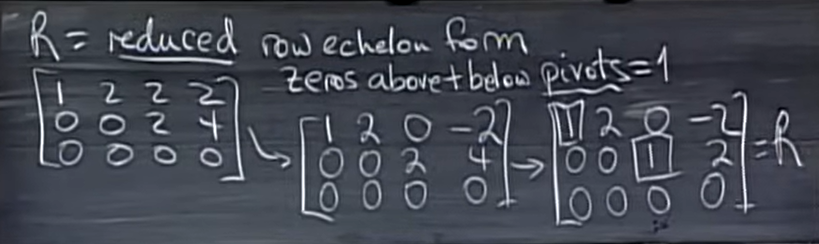 R = reduced row echelon form
zeros above + below pivots = 1
[1 2 2 2
0 0 2 4
0 0 0 0]
→
[1 2 0 -2
0 0 2 4
0 0 0 0]
→
[1 2 0 -2
0 0 1 2
0 0 0 0] = R